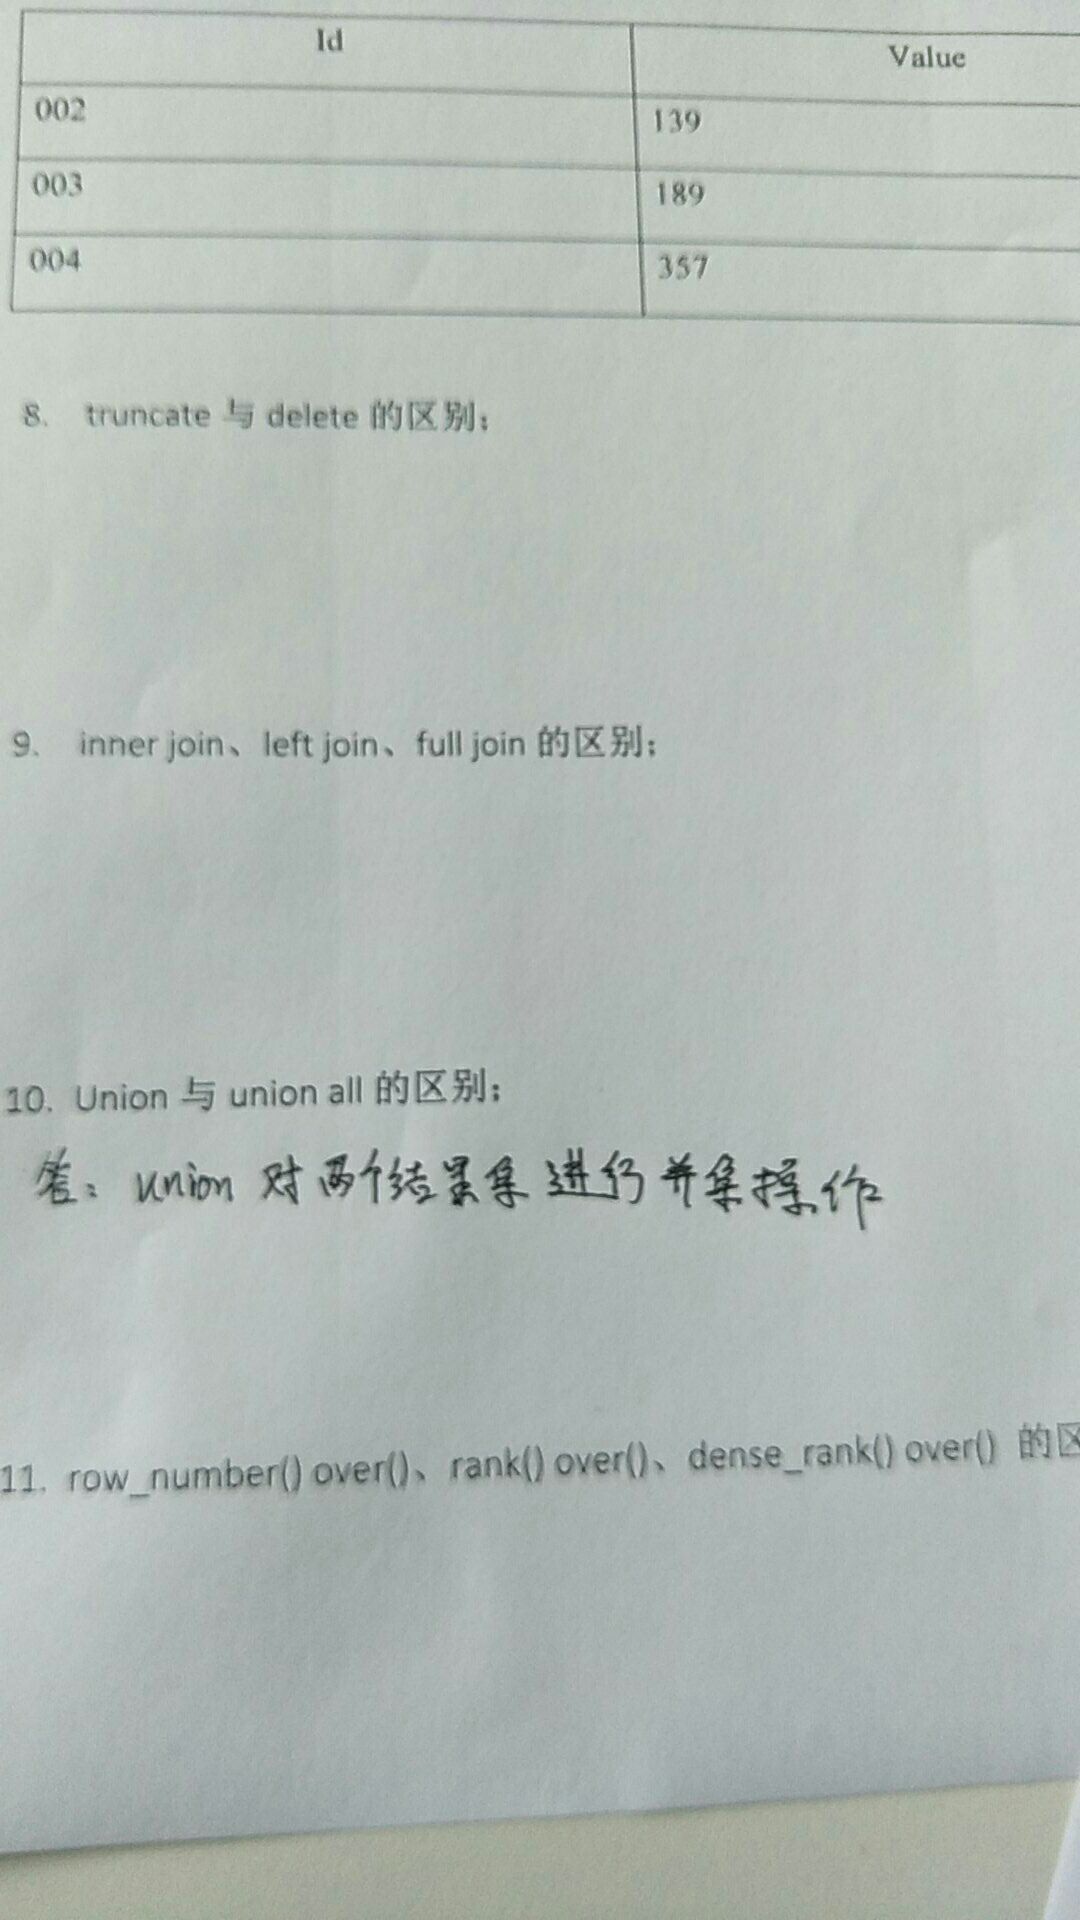 Id Value
002 139
003 189
004 357
8. truncate 与 delete 的区别；
9. inner join、left join、full join 的区别；
10. Union 与 union all 的区别；
答：union 对两个结果集进行并集操作
11. row_number() over()、rank() over()、dense_rank() over() 的区